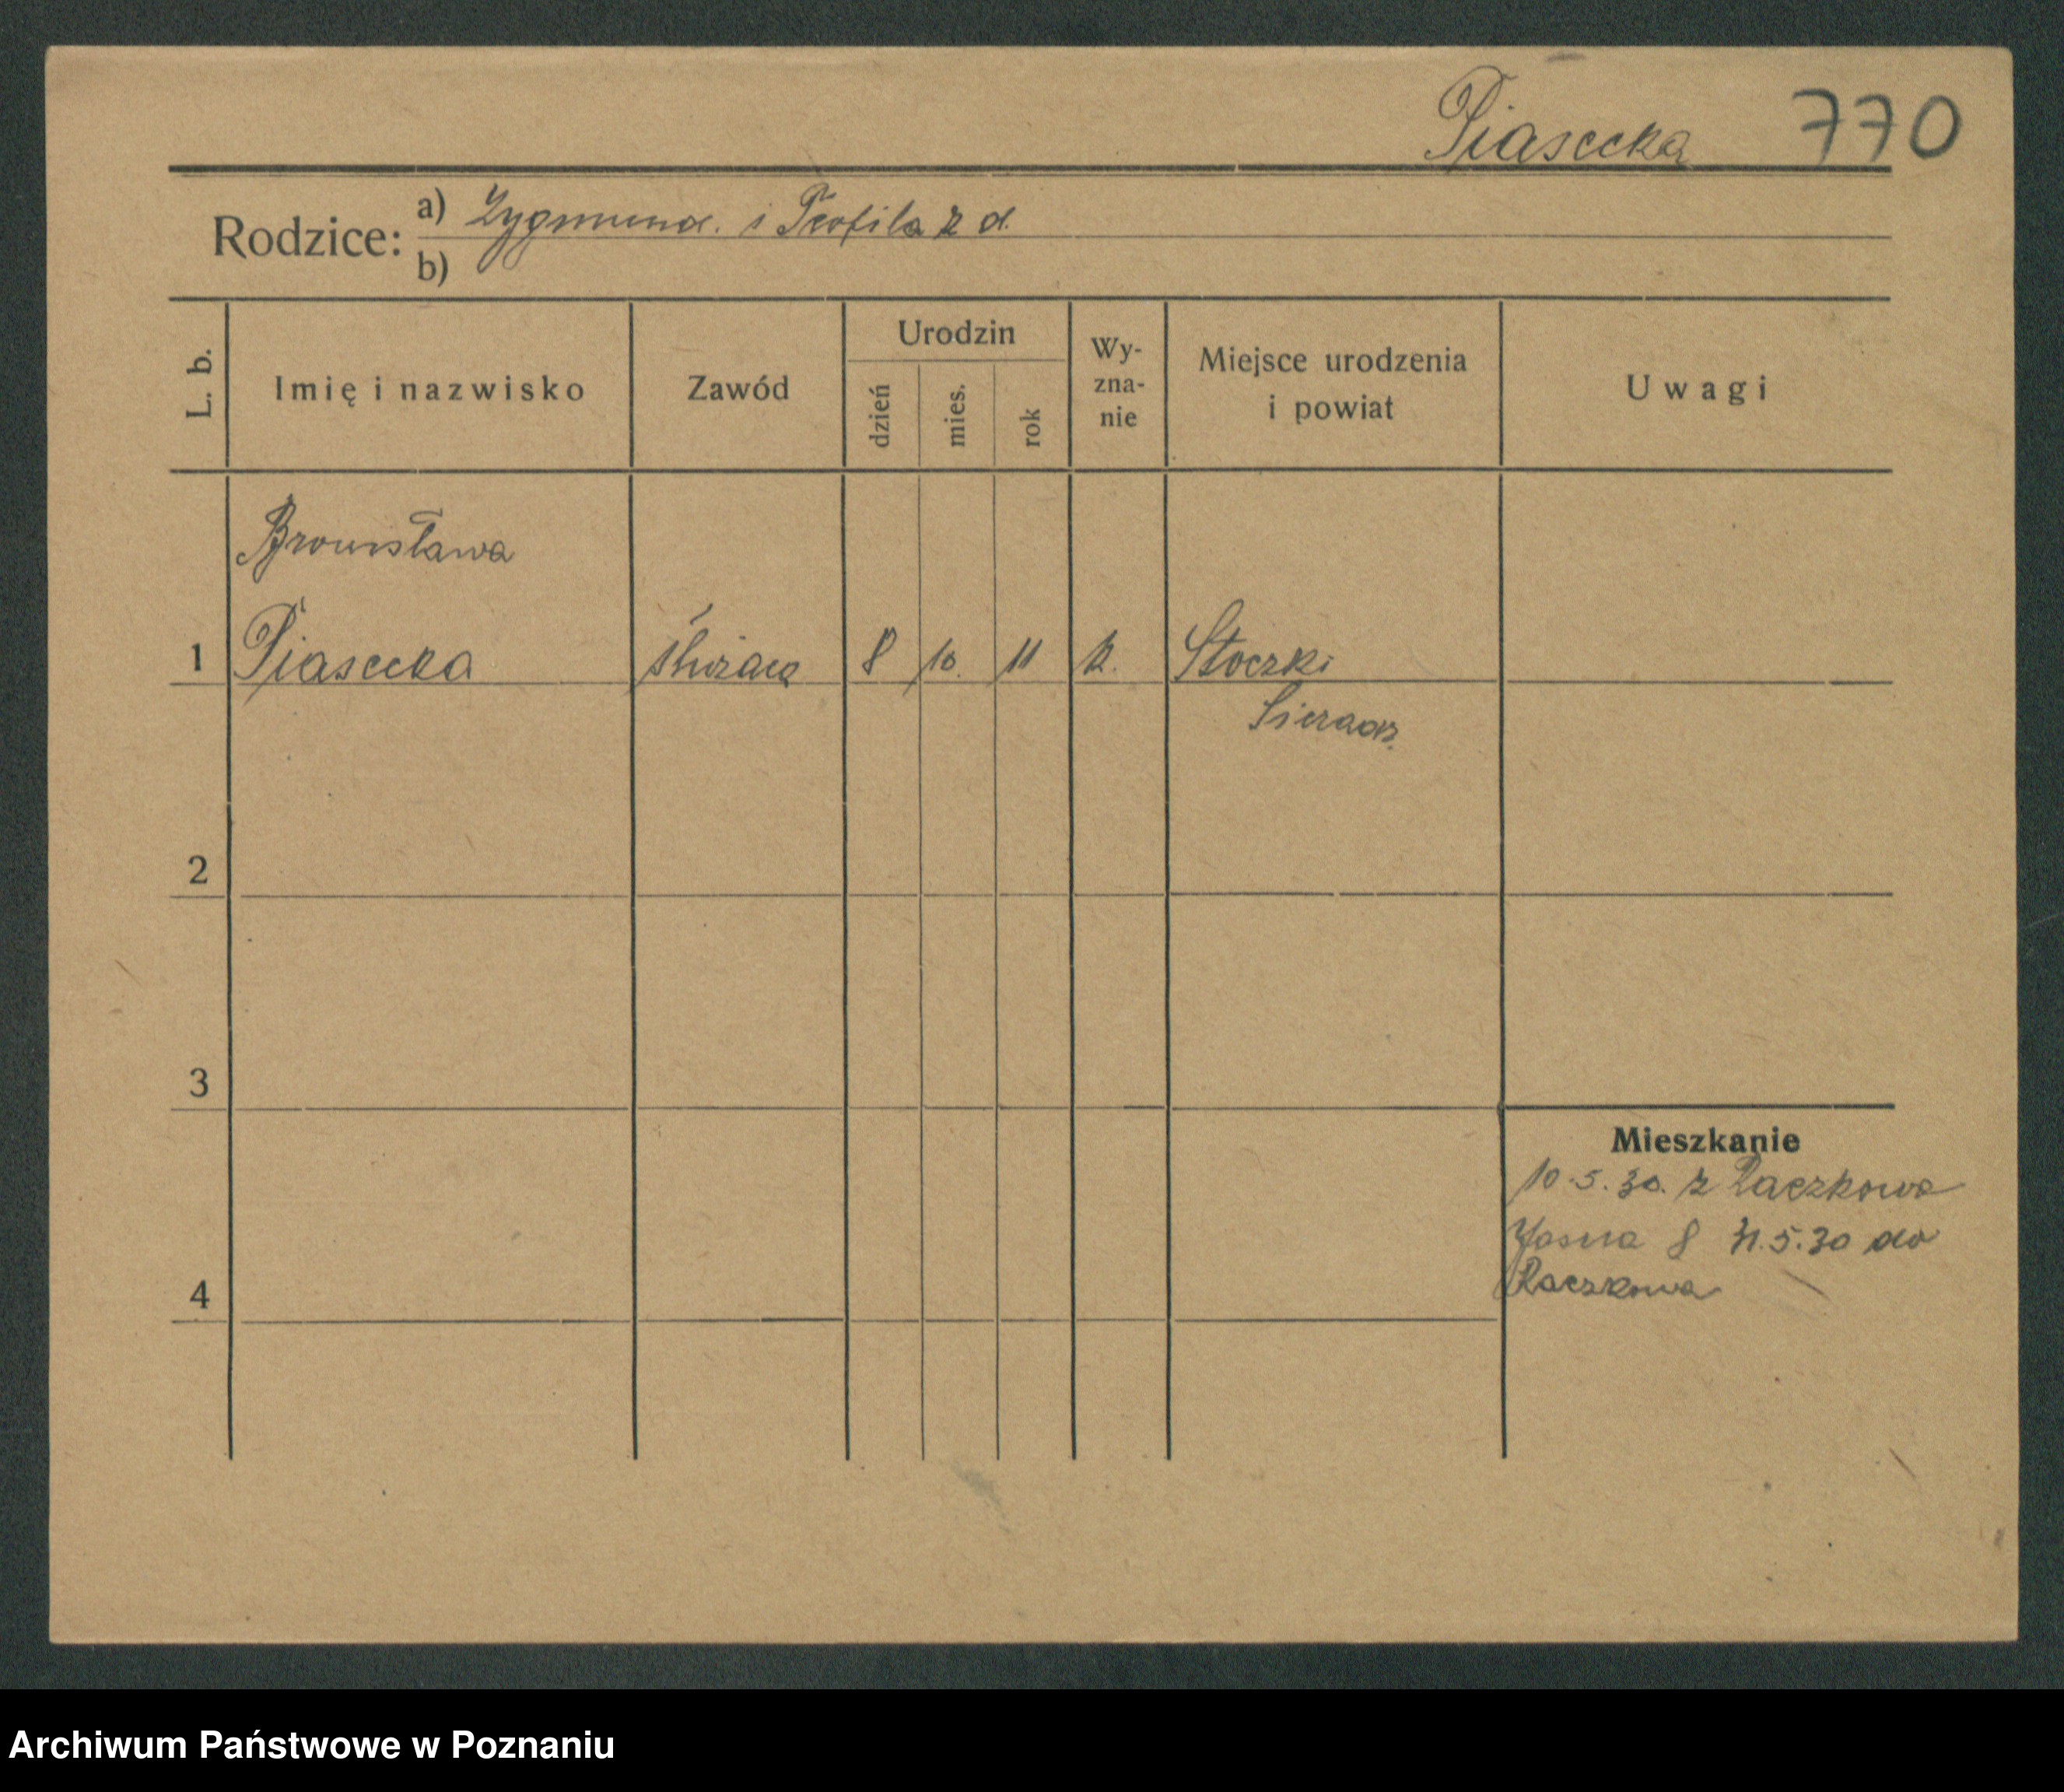 Piasecka 770
Rodzice: a) Zygmund. i Teofila z d.
b)
L. b. Imię i nazwisko Zawód Urodzin dzień mies. rok Wy-zna-nie Miejsce urodzenia i powiat Uwagi
Bronisława
1 Piasecka służąca 8 10. 11 k. Stoczki
Sieradz.
2
3
Mieszkanie
10.5.30. z Raczkowa
Jasna 8 31.5.30 do
4 Raczkowa
Archiwum Państwowe w Poznaniu